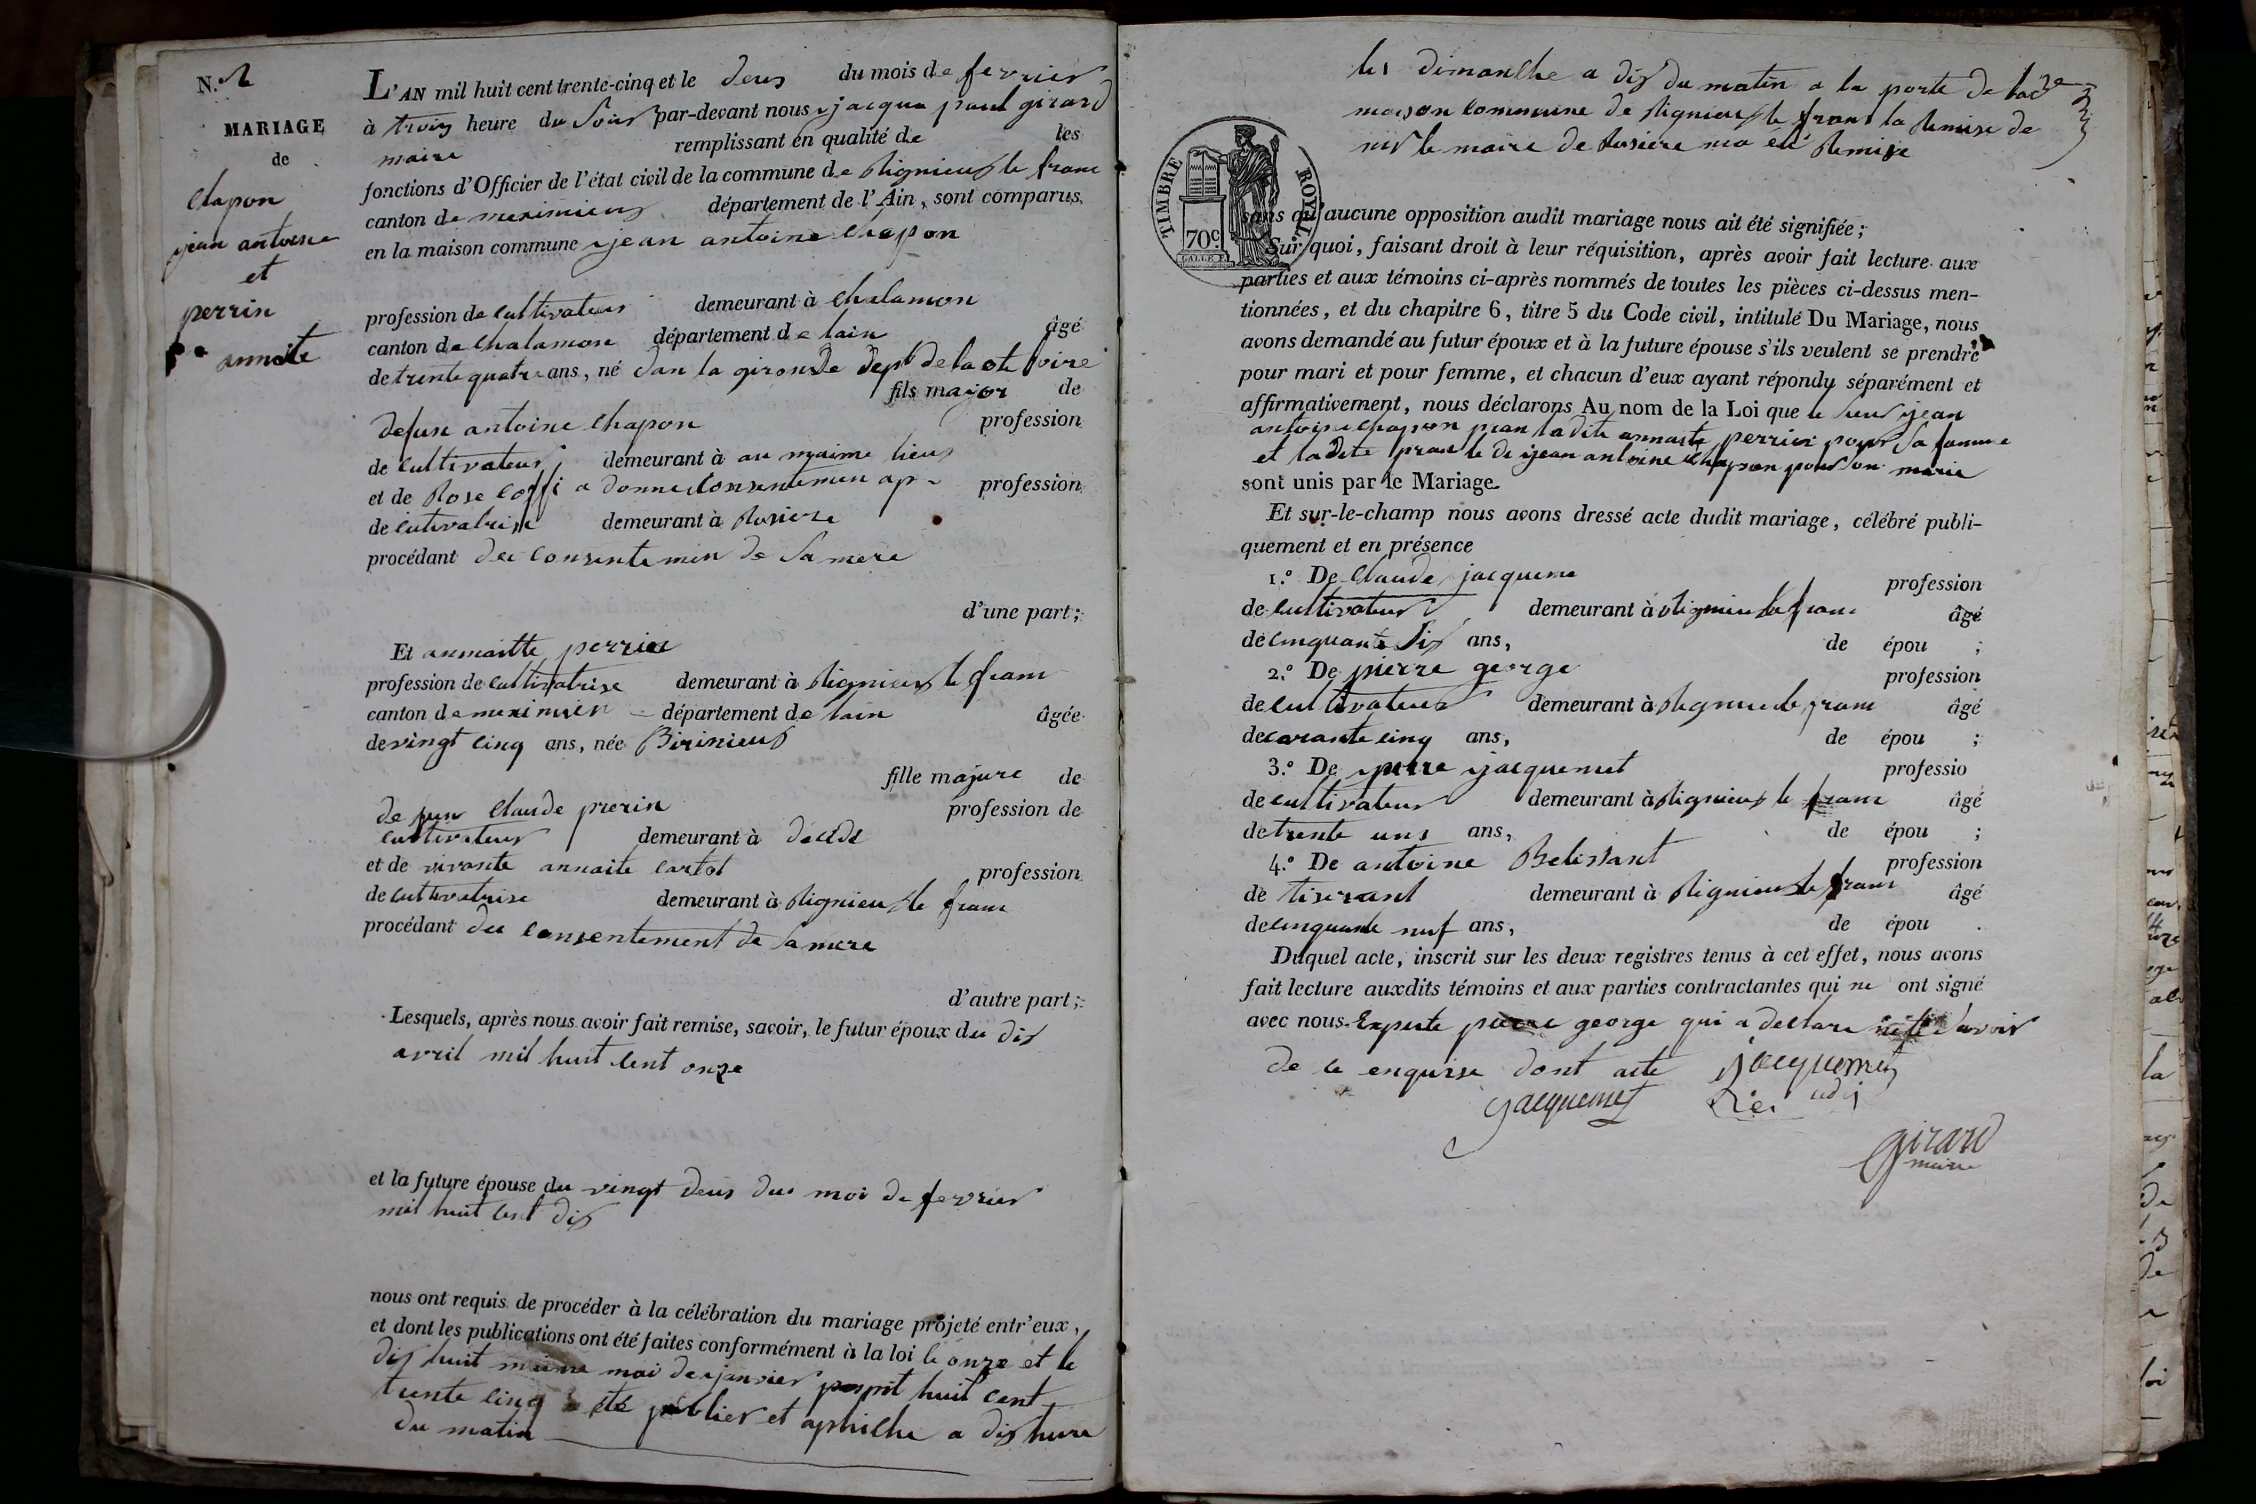 N.º 2
MARIAGE
de
Chapon
jean antoine
et
perrin
annaite
L'AN mil huit cent trente-cinq et le deus du mois de fevrier
à trois heure du Soir par-devant nous jacque paul girard
maire remplissant en qualité de les
fonctions d'Officier de l'état civil de la commune de Rignieux le franc
canton de meximieux département de l'Ain, sont comparus
en la maison commune jean antoine Chapon
profession de cultivateur demeurant à Chalamon
canton de Chalamon département de lain âgé
de trente quatre ans, né dan la gironde dept de la ote loire
fils major de
defun antoine Chapon profession
de cultivateur demeurant à au maime lieus
et de Rose a donne consentemen profession
de demeurant à Rosiere
procédant du consentemen de Sa mere
d'une part;
Et annaitte perrin
profession de cultivatrise demeurant à Rignieux le franc
canton de meximier département de lain âgée
de vingt cinq ans, née Birinieus
fille majure de
de fun Claude prerin profession de
cultivateur demeurant à décédé
et de vivante annaite profession
de cultivatrise demeurant à Rignieux le franc
procédant du consentement de Sa mere
d'autre part;
Lesquels, après nous avoir fait remise, savoir, le futur époux du dix
avril mil huit cent onze
et la future épouse du vingt deus du moi de fevrier
mil huit cent dix
nous ont requis de procéder à la célébration du mariage projeté entr'eux,
et dont les publications ont été faites conformément à la loi le onze et le
dix huit maime moi de janvier huit cent
trente cinq été publier et aphiche a dix hure
du matin
les dimanche a dix du matin a la porte de
maison commune de Rignieux le franc la Remise de
le maire de Rosiere ma été Remise
TIMBRE ROYAL
70c
sans qu'aucune opposition audit mariage nous ait été signifiée;
Sur quoi, faisant droit à leur réquisition, après avoir fait lecture aux
parties et aux témoins ci-après nommés de toutes les pièces ci-dessus men-
tionnées, et du chapitre 6, titre 5 du Code civil, intitulé Du Mariage, nous
avons demandé au futur époux et à la future épouse s'ils veulent se prendre
pour mari et pour femme, et chacun d'eux ayant répondu séparément et
affirmativement, nous déclarons Au nom de la Loi que le sieur jean
antoine Chapon pran ladite annaite perrin pour Sa famme
et ladite pran le di jean antoine Chapon pour Son marie
sont unis par le Mariage
Et sur-le-champ nous avons dressé acte dudit mariage, célébré publi-
quement et en présence
1.º De Claude jacqueme profession
de cultivateur demeurant à Rignieu le franc âgé
de cinquante Six ans, de épou ;
2.º De pierre george profession
de cultivateur demeurant à Rignieu le franc âgé
de carante cinq ans, de épou ;
3.º De pierre jacquemet professio
de cultivateur demeurant à Rignieux le franc âgé
de trente uns ans, de épou ;
4.º De antoine Belissant profession
de tiserant demeurant à Rignieux le franc âgé
de cinquante nuf ans, de épou .
Duquel acte, inscrit sur les deux registres tenus à cet effet, nous avons
fait lecture auxdits témoins et aux parties contractantes qui ne ont signé
avec nous. Expeste pierre george qui a declare Savoir
de ce enquise dont acte jacquemet
jacquemet
girard
maire